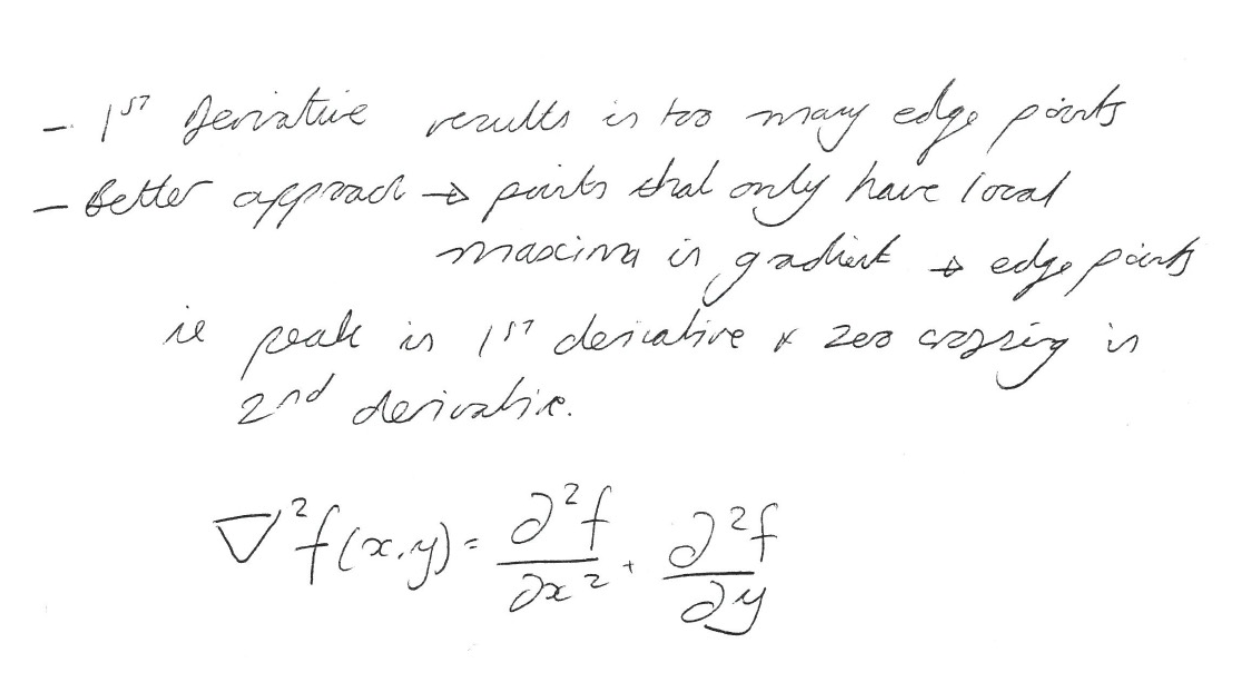 - 1ST derivative results in too many edge points
- Better approach → points that only have local
maxima in gradient → edge points
ie peak in 1ST derivative & zero crossing in
2nd derivative.
∇²f(x,y) = ∂²f/∂x² + ∂²f/∂y